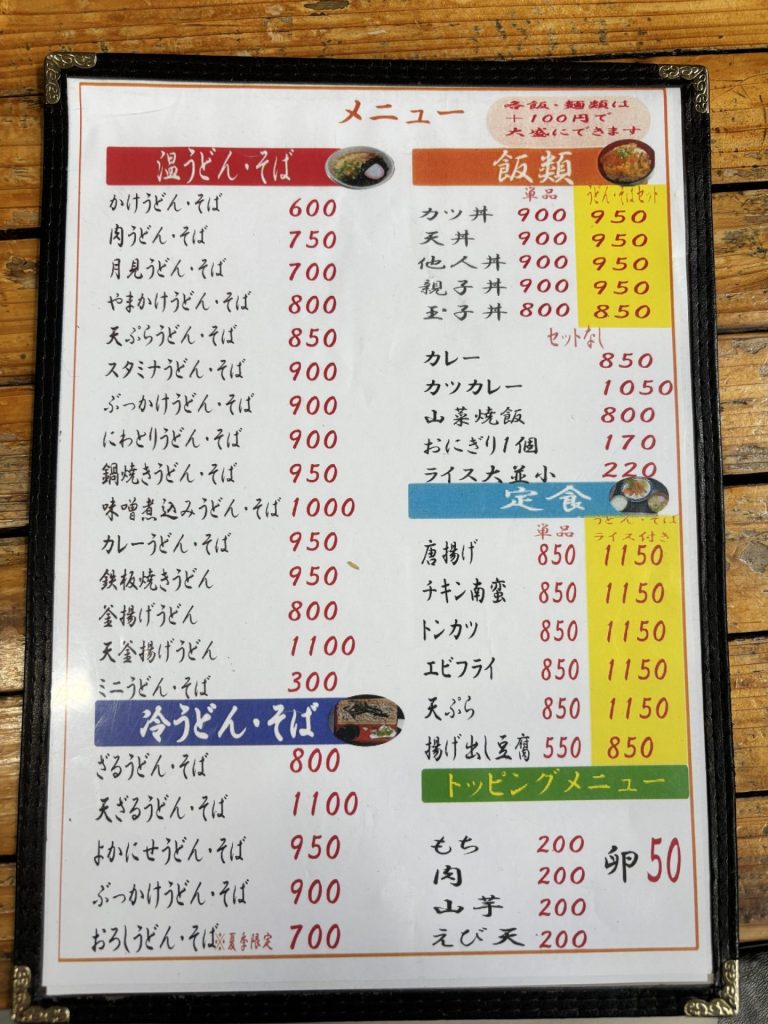 メニュー
各飯・麺類は
+100円で
大盛にできます
温うどん・そば
かけうどん・そば 600
肉うどん・そば 750
月見うどん・そば 700
やまかけうどん・そば 800
天ぷらうどん・そば 850
スタミナうどん・そば 900
ぶっかけうどん・そば 900
にわとりうどん・そば 900
鍋焼きうどん・そば 950
味噌煮込みうどん・そば 1000
カレーうどん・そば 950
鉄板焼きうどん 950
釜揚げうどん 800
天釜揚げうどん 1100
ミニうどん・そば 300
冷うどん・そば
ざるうどん・そば 800
天ざるうどん・そば 1100
よかにせうどん・そば 950
ぶっかけうどん・そば 900
おろしうどん・そば※夏季限定 700
飯類
単品 うどん・そばセット
カツ丼 900 950
天丼 900 950
他人丼 900 950
親子丼 900 950
玉子丼 800 850
セットなし
カレー 850
カツカレー 1050
山菜焼飯 800
おにぎり1個 170
ライス大並小 220
定食
うどん・そば
単品 ライス付き
唐揚げ 850 1150
チキン南蛮 850 1150
トンカツ 850 1150
エビフライ 850 1150
天ぷら 850 1150
揚げ出し豆腐 550 850
トッピングメニュー
もち 200
肉 200
山芋 200
えび天 200
卵 50